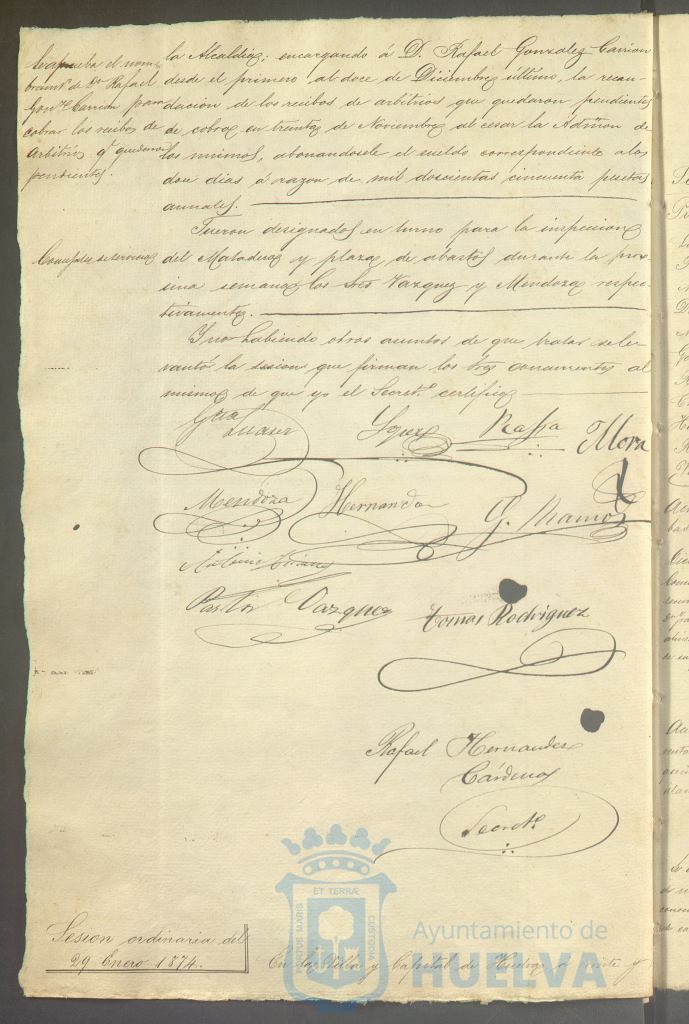 Se aprueba el nom-
bramto de Dn Rafael
Gonz. Carrión para
cobrar los recibos de
arbitrios q. quedaron
pendientes.
la Alcaldia; encargando á D. Rafael Gonzalez Carrion
desde el primero al doce de Diciembre último, la recau-
dación de los recibos de arbitrios que quedaron pendientes
de cobro en treinta de Noviembre al cesar la Admon de
los mismos, abonandosele el sueldo correspondiente a los
doce dias á razon de mil doscientas cincuenta pesetas
anuales.
Concejales de servicio
Fueron designados en turno para la inspeccion
del Matadero y plaza de abastos durante la pro-
sima semana los Sres Vazquez y Mendoza respec-
tivamente.
Y no habiendo otros asuntos de que tratar se le-
vantó la sesion que firman los Sres concurrentes al
mismo de que yo el Secreto certifico
Mora
Mendoza Hernandez G. Ramos
Pastor Vazquez Tomas Rodriguez
Rafael Hernandez
Cárdenas
Secreto
Sesion ordinaria del
29 Enero 1874.
En la Villa y Capital de Huelva á veinte y
ET TERRÆ
PORTUS MARIS
CUSTODIA
Ayuntamiento de
HUELVA